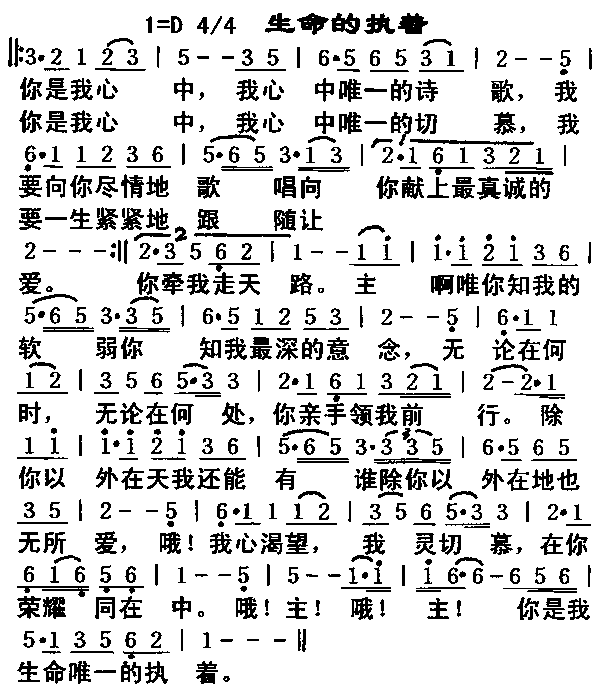 1=D 4/4 生命的执着
‖:3·2 1 2 3 | 5--3 5 | 6·5 6 5 3 1 | 2--5 |
你是我心 中，我心 中唯一的诗 歌，我
你是我心 中，我心 中唯一的切 慕，我
6·1 1 2 3 6 | 5·6 5 3·1 3 | 2·1 6 1 3 2 1 |
要向你尽情地 歌 唱向 你献上最真诚的
要一生紧紧地 跟 随让
2---:‖ 2·3 5 6 2 | 1--1 | 1·1 2 1 3 6 |
爱。 你牵我走天 路。主 啊唯你知我的
5·6 5 3·3 5 | 6·5 1 2 5 3 | 2--5 | 6·1 1
软 弱你 知我最深的意 念，无 论在何
1 2 | 3 5 6 5·3 | 2·1 6 1 3 2 1 | 2-2·1
时， 无论在何 处，你亲手领我前 行。除
1 1 | 1·1 2 1 3 6 | 5·6 5 3·3 3 5 | 6·5 6 5
你以 外在天我还能 有 谁除你以 外在地也
3 5 | 2--5 | 6·1 1 1 2 | 3 5 6 5·3 | 2·1
无所 爱，哦！我心渴望， 我 灵切慕，在你
6 1 6 5 6 | 1--5 | 5--1·1 | 1 6·6-6 5 6 |
荣耀 同在 中。哦！主！哦！ 主！ 你是我
5·1 3 5 6 2 | 1---‖
生命唯一的执 着。